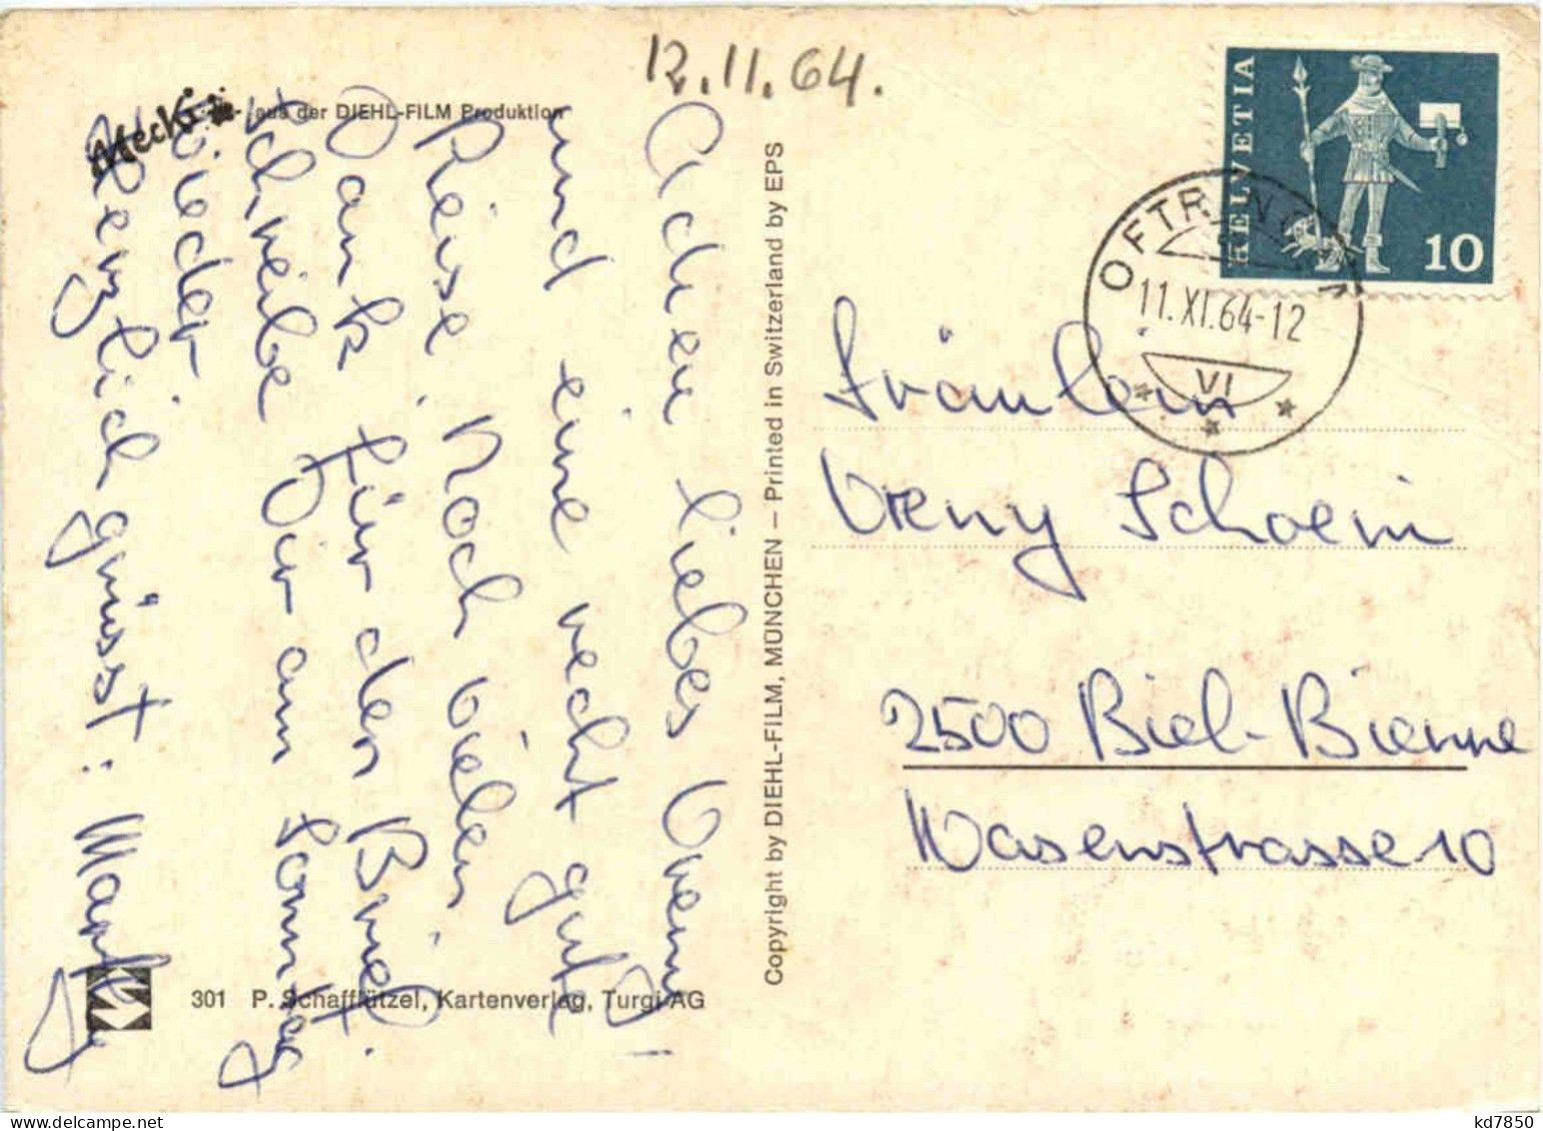 12.11.64.
Mecki - aus der DIEHL-FILM Produktion
Adieu liebes Vreny!
und eine recht gute
Reise. Noch vielen
Dank für den Brief.
Schreibe Dir am Sonntag
wieder.
Herzlich grüsst: Marthy
301 P. Schafflützel, Kartenverlag, Turgi AG
Copyright by DIEHL-FILM, MÜNCHEN – Printed in Switzerland by EPS
HELVETIA
10
OFTRINGEN
11.XI.64-12
VI
Fräulein
Vreny Schoeni
2500 Biel-Bienne
Wasenstrasse 10
kd7850